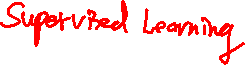 Supervised Learning